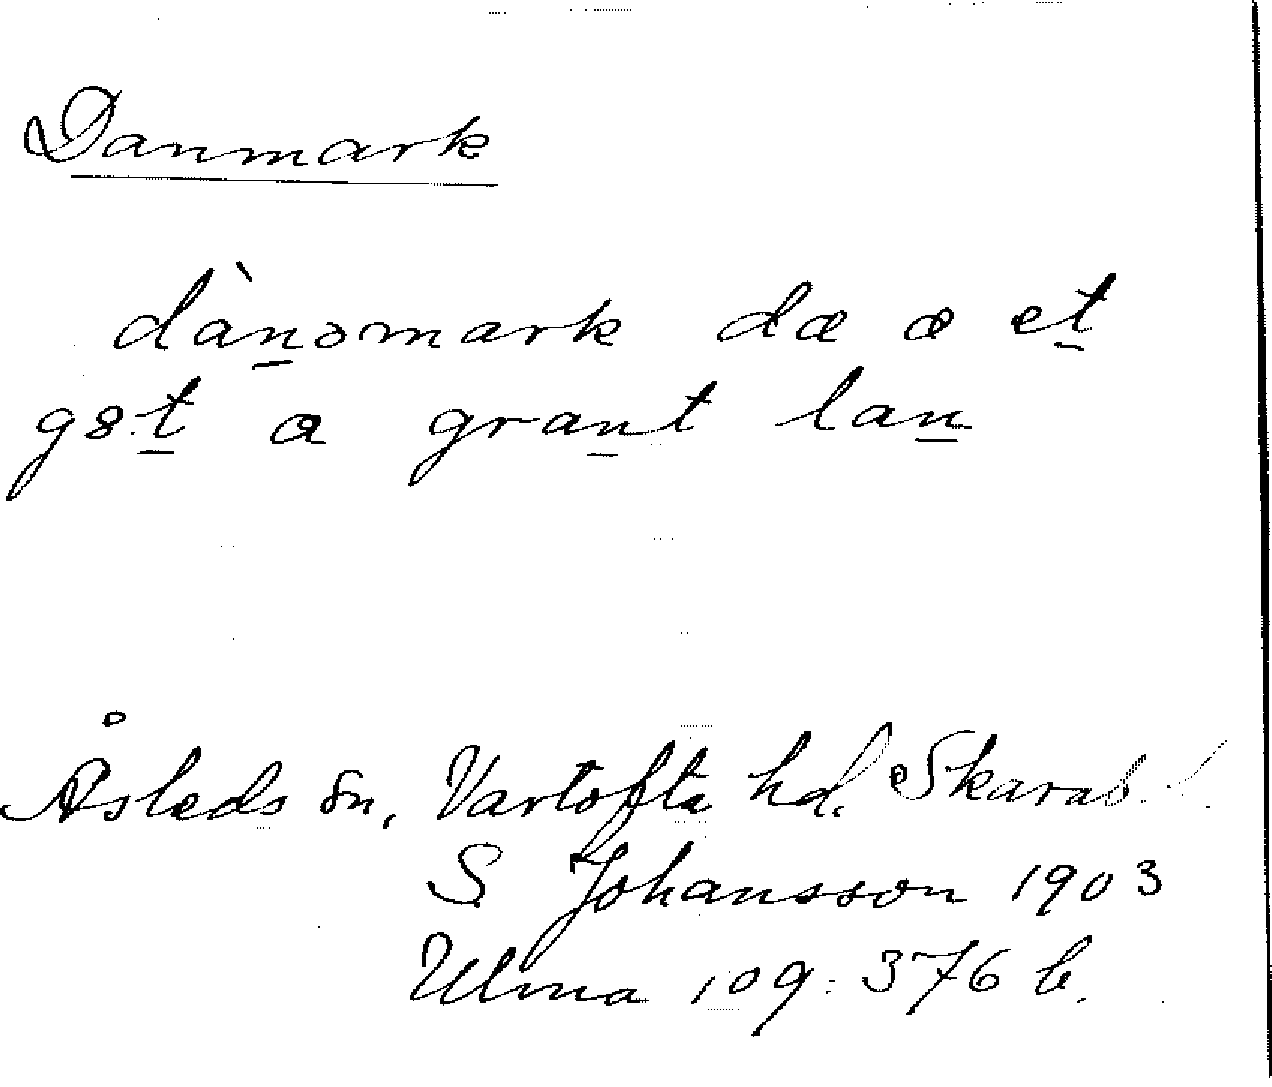 Danmark
dànəmark dæ æ et̲
gȣt̲ a gran̲t lan̲
Åsleds sn, Vartofta hd. Skarab.
S Johansson 1903
Ulma 109:376 b.